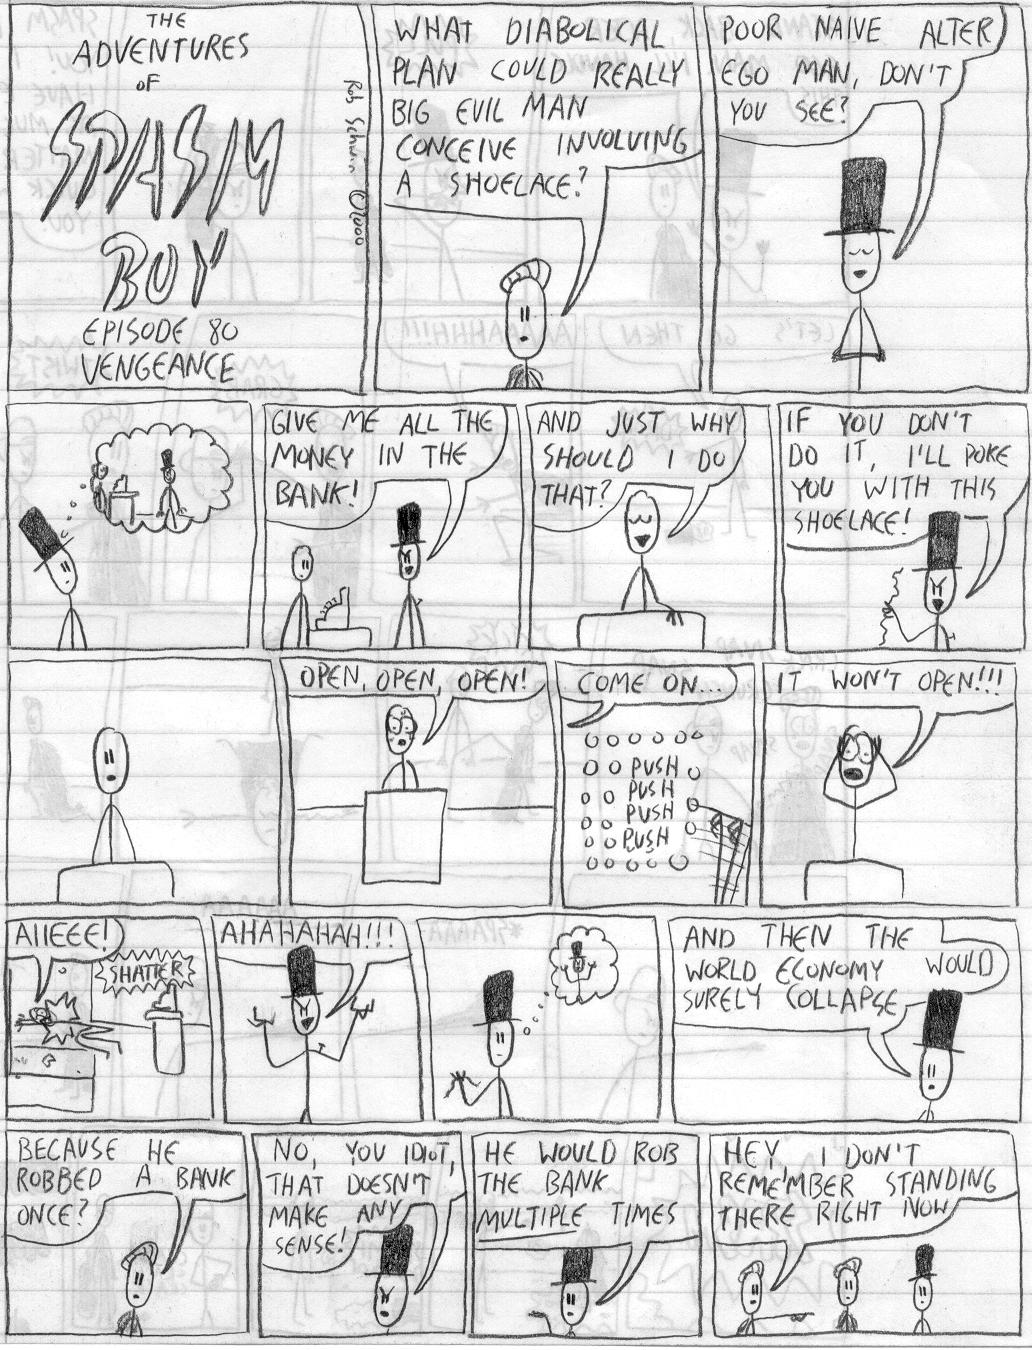 THE
ADVENTURES
OF
SPASM
BOY
EPISODE 80
VENGEANCE
©2000
WHAT DIABOLICAL
PLAN COULD REALLY
BIG EVIL MAN
CONCEIVE INVOLVING
A SHOELACE?
POOR NAIVE ALTER
EGO MAN, DON'T
YOU SEE?
GIVE ME ALL THE
MONEY IN THE
BANK!
AND JUST WHY
SHOULD I DO
THAT?
IF YOU DON'T
DO IT, I'LL POKE
YOU WITH THIS
SHOELACE!
OPEN, OPEN, OPEN!
COME ON...
PUSH
PUSH
PUSH
PUSH
IT WON'T OPEN!!!
AIIEEE!
SHATTER
AHAHAHAH!!!
AND THEN THE
WORLD ECONOMY WOULD
SURELY COLLAPSE
BECAUSE HE
ROBBED A BANK
ONCE?
NO, YOU IDIOT,
THAT DOESN'T
MAKE ANY
SENSE!
HE WOULD ROB
THE BANK
MULTIPLE TIMES
HEY, I DON'T
REMEMBER STANDING
THERE RIGHT NOW